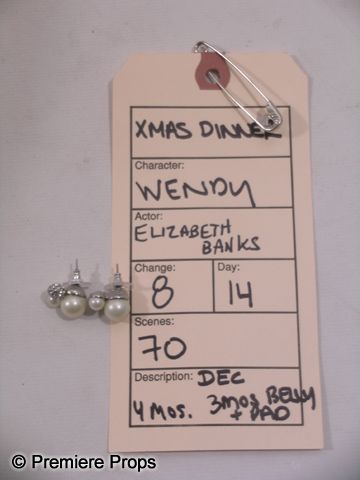 XMAS DINNER
Character:
WENDY
Actor:
ELIZABETH
BANKS
Change: Day:
8 14
Scenes:
70
Description: DEC
4 MOS. 3MOS BELLY
+ PAD
© Premiere Props